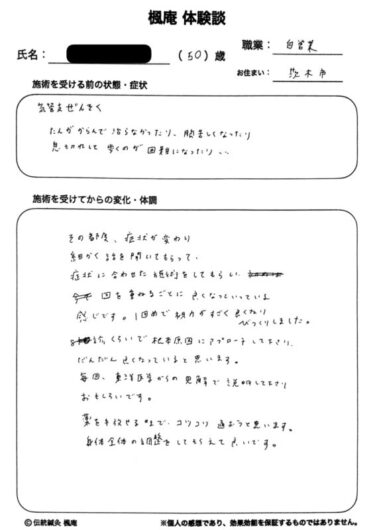 楓庵 体験談
氏名：
（50）歳
職業： 自営業
お住まい： 茨木市
施術を受ける前の状態・症状
気管支ぜんそく
たんがからんで治らなかったり、胸苦しくなったり
息切れして歩くのが困難になったり…
施術を受けてからの変化・体調
その都度、症状が変わり
細かく話を聞いてもらって、
症状に合わせた施術をしてもらい
回を重ねるごとに良くなっていっている
感じです。1回めで効力がすごく良くなり
びっくりしました。
くらいで根本原因にアプローチして下さり、
だんだん良くなっていると思います。
毎回、東洋医学からの見解で説明して下さり
おもしろいです。
薬を手放せるまで、コツコツ通おうと思います。
身体全体の調整をしてもらえて良いです。
© 伝統鍼灸 楓庵
※個人の感想であり、効果効能を保証するものではありません。